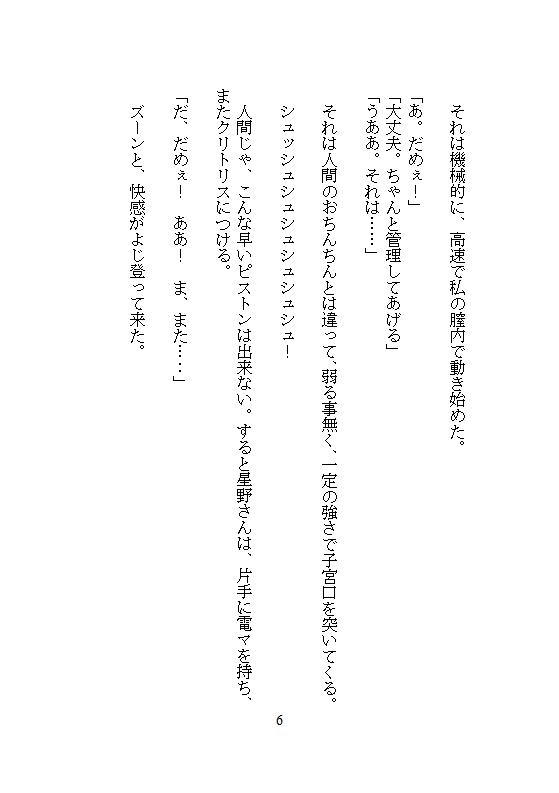 それは機械的に、高速で私の膣内で動き始めた。
「あ。だめぇ！」
「大丈夫。ちゃんと管理してあげる」
「うああ。それは……」
それは人間のおちんちんとは違って、弱る事無く、一定の強さで子宮口を突いてくる。
シュッシュシュシュシュシュシュ！
人間じゃ、こんな早いピストンは出来ない。すると星野さんは、片手に電マを持ち、
またクリトリスにつける。
「だ、だめぇ！　ああ！　ま、また……」
ズーンと、快感がよじ登って来た。
6